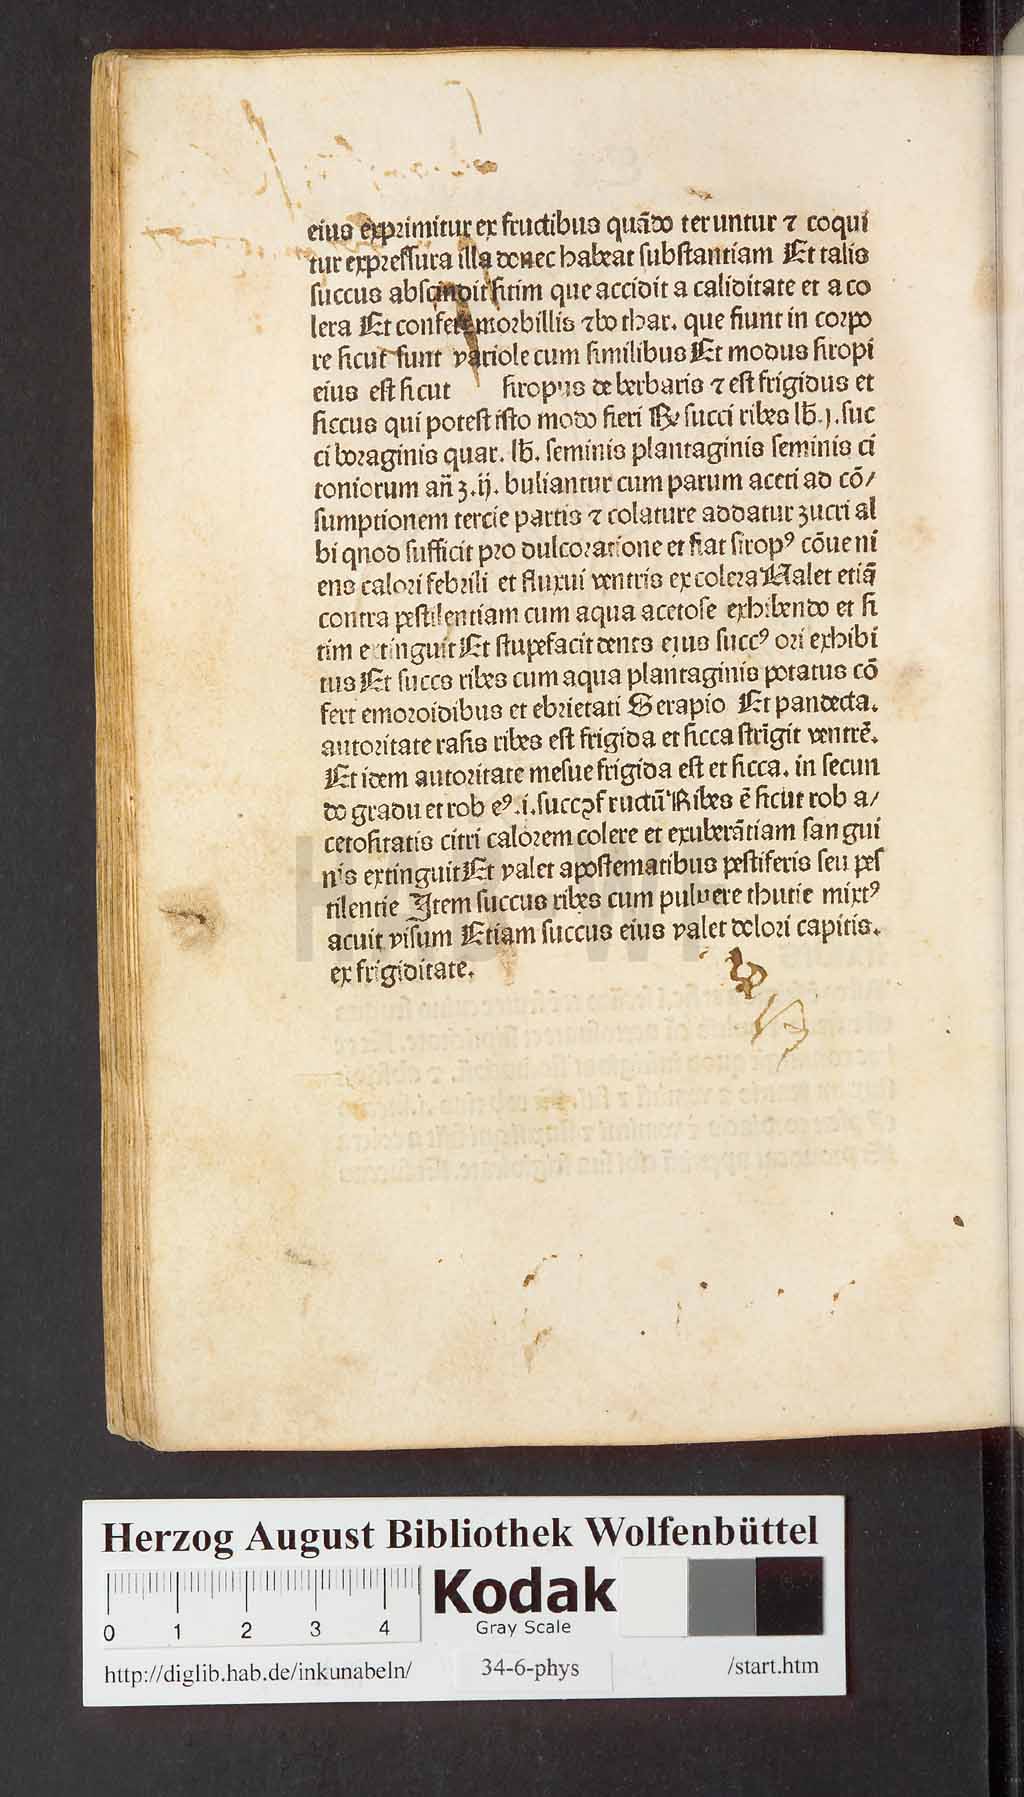 eius exprimitur ex fructibus quādo teruntur ⁊ coqui
tur expressura illa donec habeat substantiam Et talis
succus abscindit sitim que accidit a caliditate et a co
lera Et confert morbillis ⁊ bothar. que fiunt in corpo
re sicut sunt variole cum similibus Et modus siropi
eius est sicut siropus de berbaris ⁊ est frigidus et
siccus qui potest isto modo fieri ℞ succi ribes lb̄.j. suc
ci boraginis quar. lb̄. seminis plantaginis seminis ci
toniorum an̄ ʒ.ij. buliantur cum parum aceti ad cō/
sumptionem tercie partis ⁊ colature addatur zucri al
bi qnod sufficit pro dulcoratione et fiat siropꝰ cōueni
ens calori febrili et fluxui ventris ex colera Valet etiā
contra pestilentiam cum aqua acetose exhibendo et si
tim extinguit Et stupefacit dentes eius succꝰ ori exhibi
tus Et succs ribes cum aqua plantaginis potatus cō
fert emoroidibus et ebrietati Serapio Et pandecta.
autoritate rasis ribes est frigida et sicca strīgit ventrē.
Et idem autoritate mesue frigida est et sicca. in secun
do gradu et rob eꝰ .i. succꝰ fructū Ribes ē sicut rob a/
cetositatis citri calorem colere et exuberātiam sangui
nis extinguit Et valet apostematibus pestiferis seu pes
tilentie Item succus ribes cum puluere thutie mixtꝰ
acuit visum Etiam succus eius valet dolori capitis.
ex frigiditate.
Herzog August Bibliothek Wolfenbüttel
Kodak
Gray Scale
0 1 2 3 4
http://diglib.hab.de/inkunabeln/ 34-6-phys /start.htm